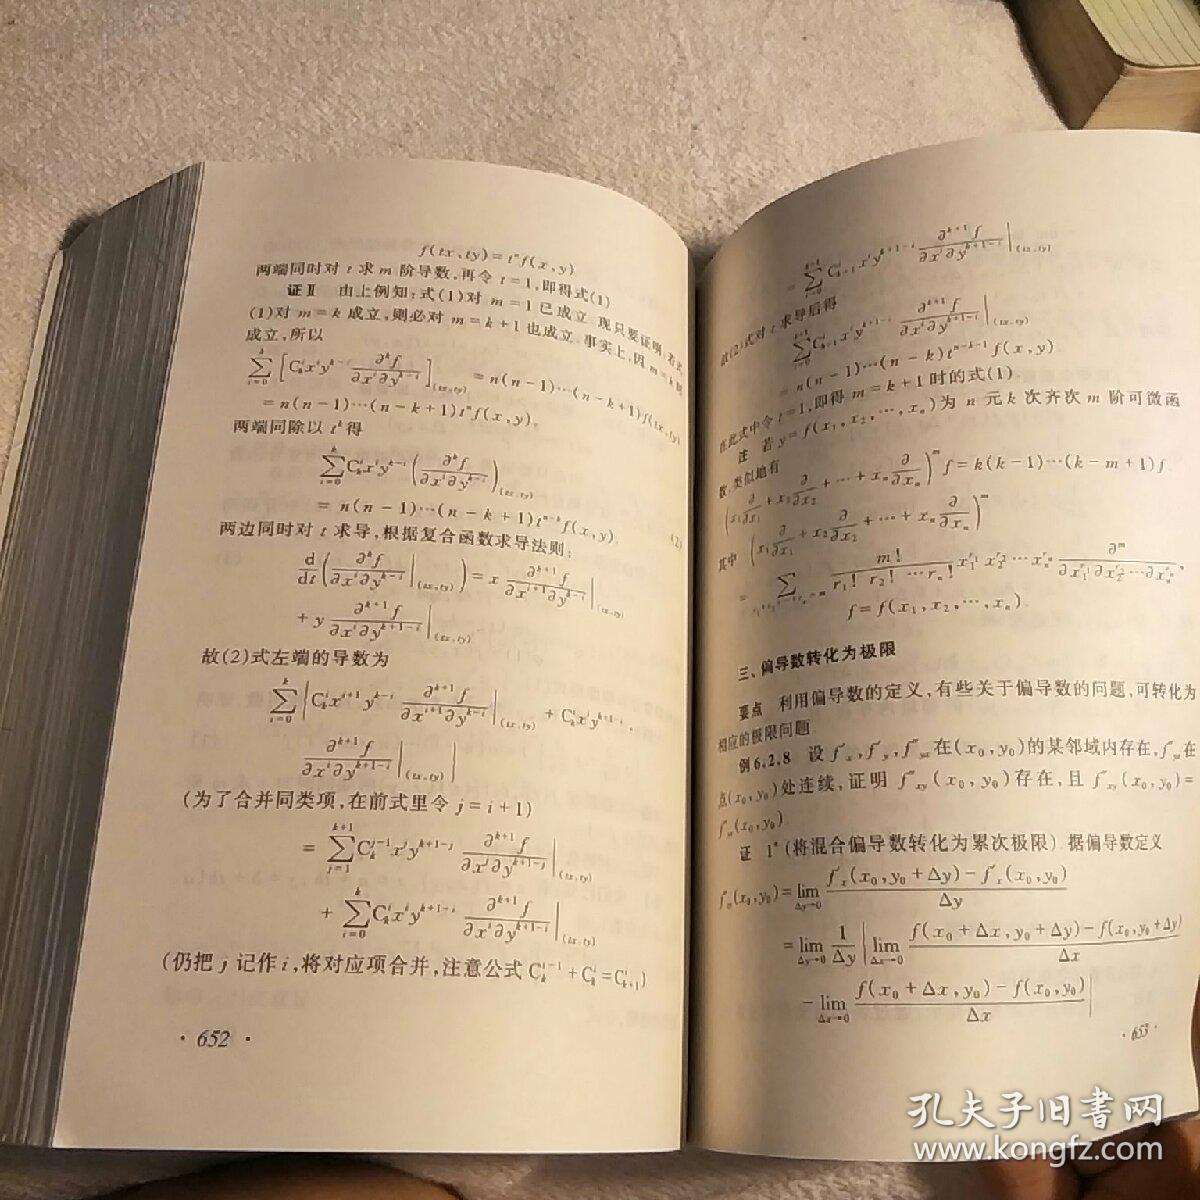 f(tx,ty)=tⁿf(x,y)
两端同时对 t 求 m 阶导数,再令 t=1,即得式(1)
证Ⅱ 由上例知:式(1)对 m=1 已成立 现只要证明
(1)对 m=k 成立,则必对 m=k+1 也成立 事实上,因 m=k
成立,所以
\sum_{i=0}^{k}\left[C_k^i x^i y^{k-i}\frac{\partial^k f}{\partial x^i\partial y^{k-i}}\right]_{(tx,ty)}=n(n-1)⋯(n-k+1)f(tx,ty)
=n(n-1)⋯(n-k+1)tⁿf(x,y),
两端同除以 tᵏ得
\sum_{i=0}^{k}C_k^i x^i y^{k-i}\left(\frac{\partial^k f}{\partial x^i\partial y^{k-i}}\right)_{(tx,ty)}
=n(n-1)⋯(n-k+1)t^{n-k}f(x,y). (2)
两边同时对 t 求导,根据复合函数求导法则:
\frac{d}{dt}\left(\frac{\partial^k f}{\partial x^i\partial y^{k-i}}\Big|_{(tx,ty)}\right)=x\frac{\partial^{k+1}f}{\partial x^{i+1}\partial y^{k-i}}\Big|_{(tx,ty)}
+y\frac{\partial^{k+1}f}{\partial x^i\partial y^{k+1-i}}\Big|_{(tx,ty)}
故(2)式左端的导数为
\sum_{i=0}^{k}\left[C_k^i x^{i+1}y^{k-i}\frac{\partial^{k+1}f}{\partial x^{i+1}\partial y^{k-i}}\Big|_{(tx,ty)}+C_k^i x^i y^{k+1-i}·
\frac{\partial^{k+1}f}{\partial x^i\partial y^{k+1-i}}\Big|_{(tx,ty)}\right]
(为了合并同类项,在前式里令 j=i+1)
=\sum_{j=1}^{k+1}C_k^{j-1}x^j y^{k+1-j}\frac{\partial^{k+1}f}{\partial x^j\partial y^{k+1-j}}\Big|_{(tx,ty)}
+\sum_{i=0}^{k}C_k^i x^i y^{k+1-i}\frac{\partial^{k+1}f}{\partial x^i\partial y^{k+1-i}}\Big|_{(tx,ty)}
(仍把 j 记作 i,将对应项合并,注意公式 C_k^{i-1}+C_k^i=C_{k+1}^i)
· 652 ·
=\sum_{i=0}^{k+1}C_{k+1}^i x^i y^{k+1-i}\frac{\partial^{k+1}f}{\partial x^i\partial y^{k+1-i}}\Big|_{(tx,ty)}
故(2)式对 t 求导后得
\sum_{i=0}^{k+1}C_{k+1}^i x^i y^{k+1-i}\frac{\partial^{k+1}f}{\partial x^i\partial y^{k+1-i}}\Big|_{(tx,ty)}
=n(n-1)⋯(n-k)t^{n-k-1}f(x,y)
在此式中令 t=1,即得 m=k+1 时的式(1)
注 若 y=f(x₁,x₂,⋯,xₙ)为 n 元 k 次齐次 m 阶可微函
数,类似地有
\left(x_1\frac{\partial}{\partial x_1}+x_2\frac{\partial}{\partial x_2}+⋯+x_n\frac{\partial}{\partial x_n}\right)^m f=k(k-1)⋯(k-m+1)f.
其中 \left(x_1\frac{\partial}{\partial x_1}+x_2\frac{\partial}{\partial x_2}+⋯+x_n\frac{\partial}{\partial x_n}\right)^m
=\sum_{r_1+r_2+⋯+r_n=m}\frac{m!}{r_1!r_2!⋯r_n!}x_1^{r_1}x_2^{r_2}⋯x_n^{r_n}\frac{\partial^m}{\partial x_1^{r_1}\partial x_2^{r_2}⋯\partial x_n^{r_n}},
f=f(x₁,x₂,⋯,xₙ).
三、偏导数转化为极限
要点 利用偏导数的定义,有些关于偏导数的问题,可转化为
相应的极限问题
例6.2.8 设 f'_x,f'_y,f''_{yx}在(x₀,y₀)的某邻域内存在,f''_{yx}在
点(x₀,y₀)处连续,证明 f''_{xy}(x₀,y₀)存在,且 f''_{xy}(x₀,y₀)=
f''_{yx}(x₀,y₀).
证 1°(将混合偏导数转化为累次极限) 据偏导数定义
f''_{xy}(x_0,y_0)=\lim_{Δy→0}\frac{f'_x(x_0,y_0+Δy)-f'_x(x_0,y_0)}{Δy}
=\lim_{Δy→0}\frac{1}{Δy}\left[\lim_{Δx→0}\frac{f(x_0+Δx,y_0+Δy)-f(x_0,y_0+Δy)}{Δx}
-\lim_{Δx→0}\frac{f(x_0+Δx,y_0)-f(x_0,y_0)}{Δx}\right]
· 653 ·
孔夫子旧书网
www.kongfz.com